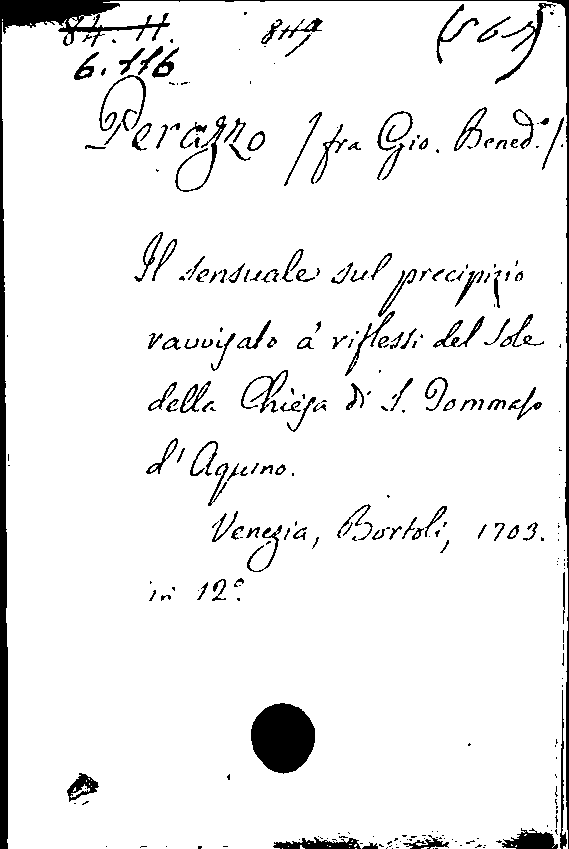 84. 11. 849 (567)
6.116
Perazzo / fra Gio. Bened.º /
Il sensuale sul precipizio
ravvisato a' riflessi del Sole
della Chiesa di S. Tommaso
d'Aquino.
Venezia, Bortoli, 1703.
in 12º